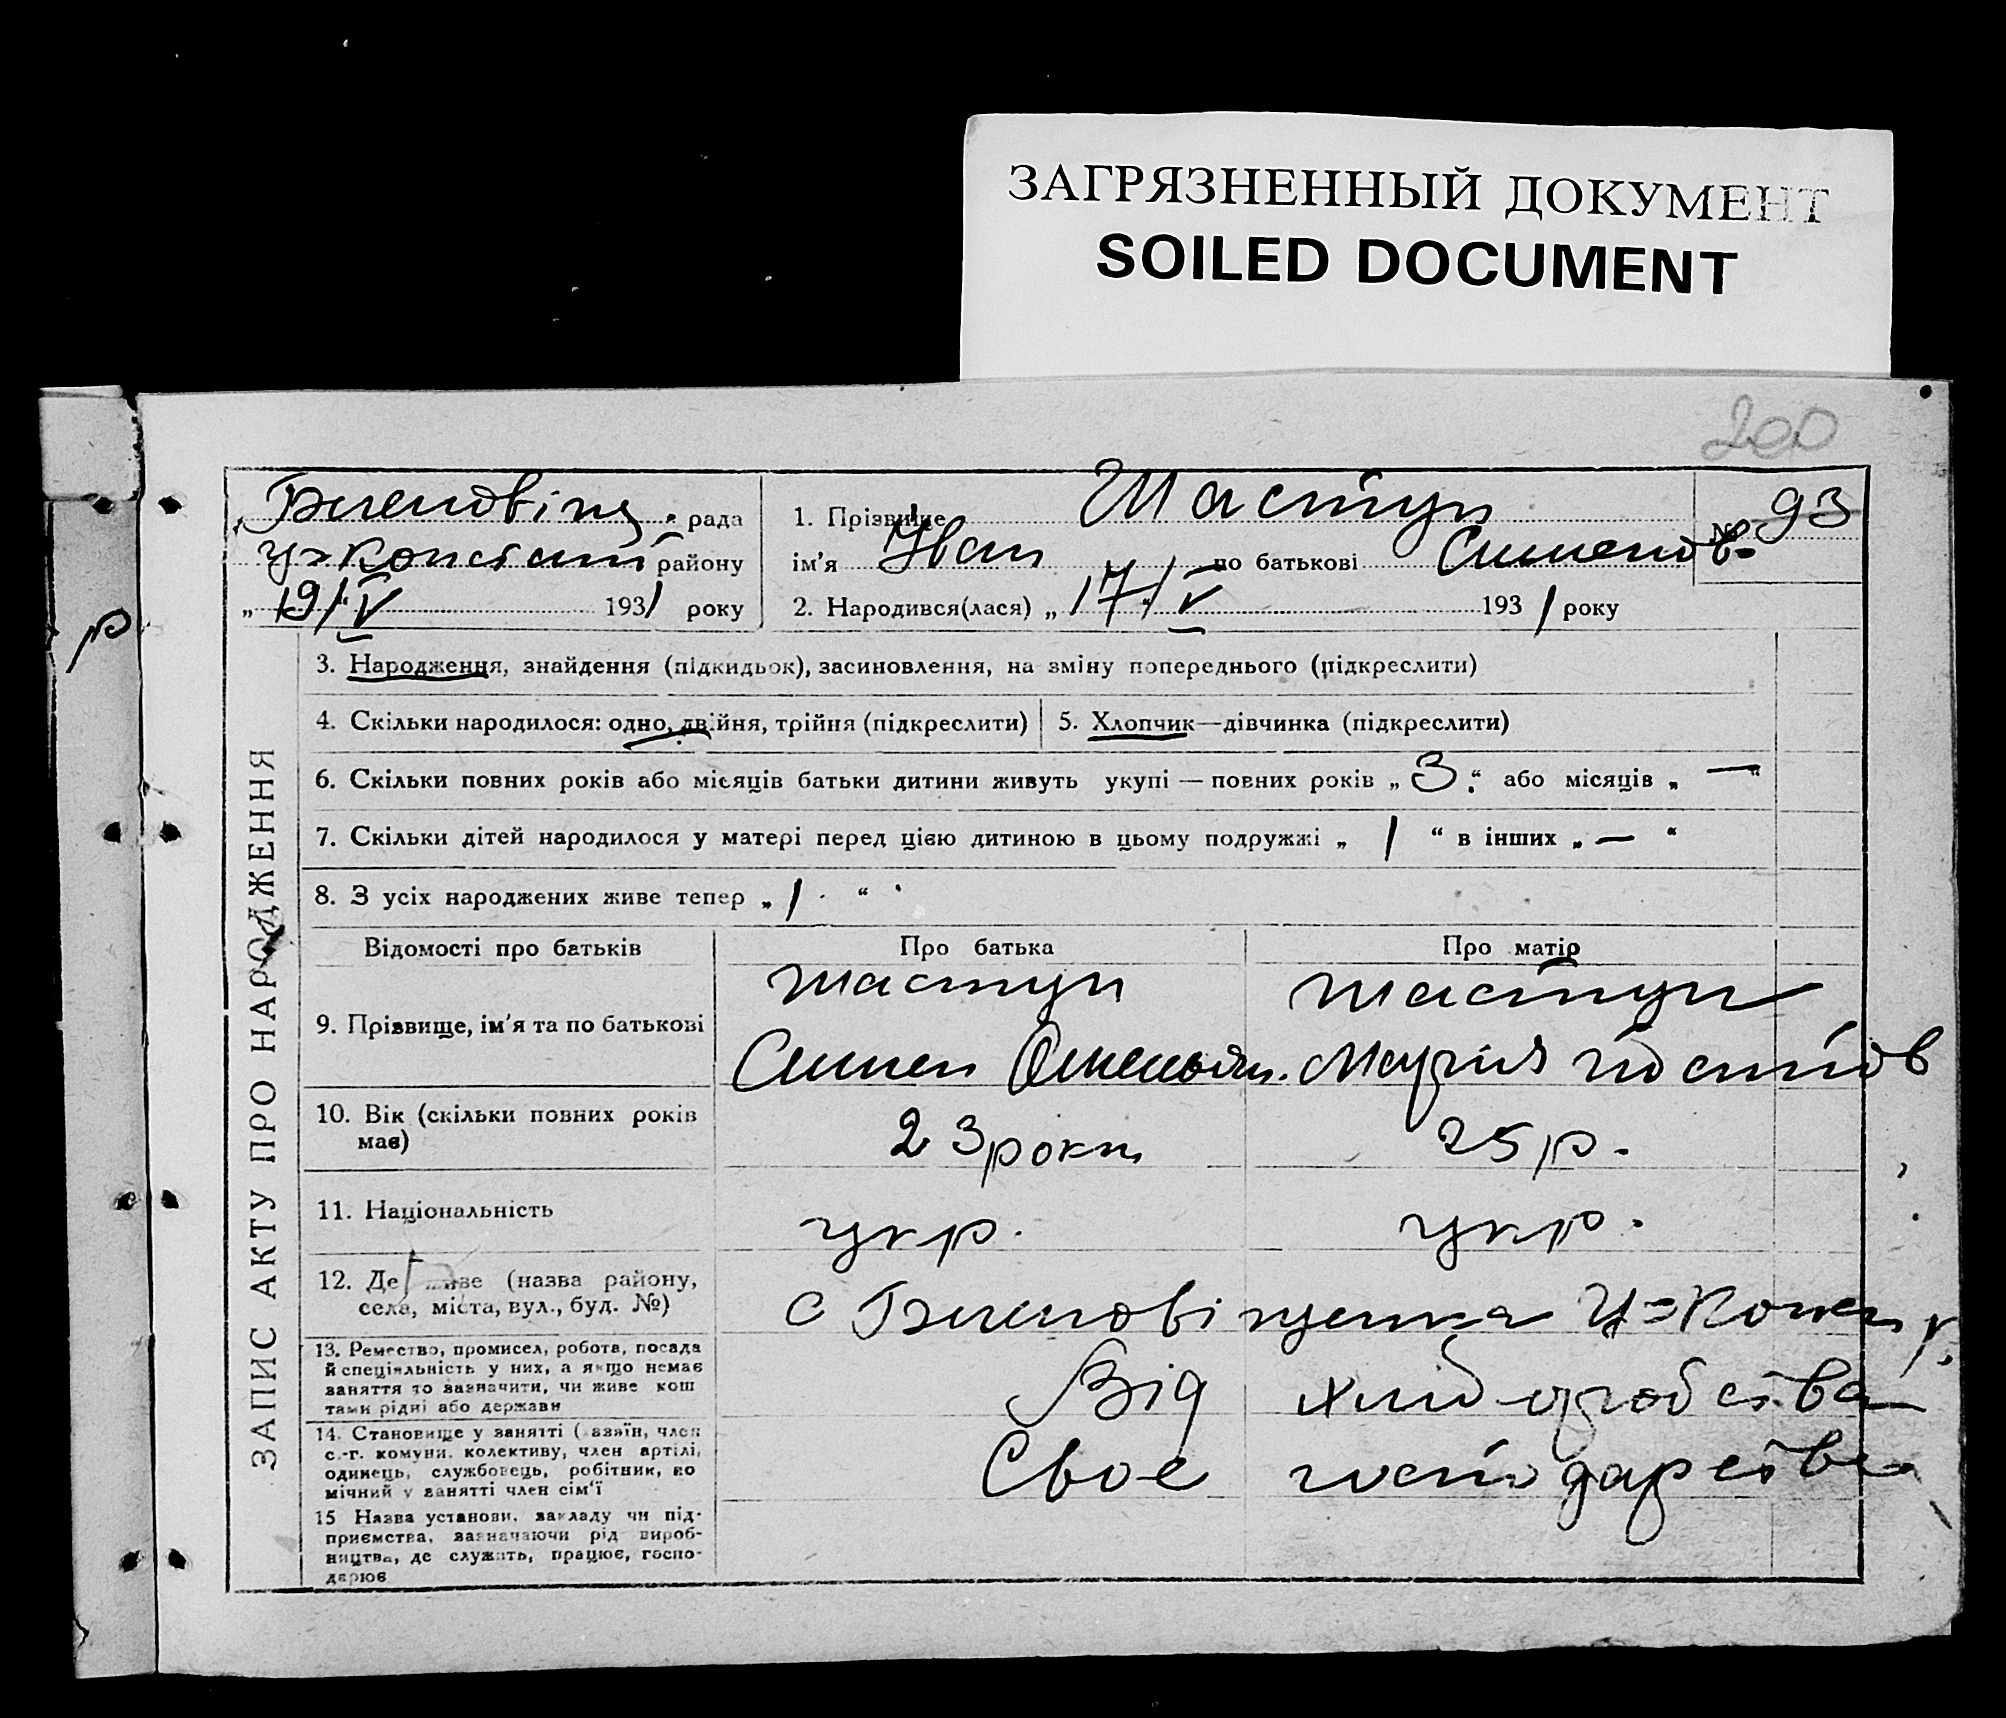 ЗАГРЯЗНЕННЫЙ ДОКУМЕНТ
SOILED DOCUMENT
200
рада
У-Констант району
„19/V 1931 року
1. Прізвище Шастун
ім'я Іван по батькові Сименов-
№ 93
2. Народився(лася) „17/V 1931 року
ЗАПИС АКТУ ПРО НАРОДЖЕННЯ
3. Народження, знайдення (підкидьок), засиновлення, на зміну попереднього (підкреслити)
4. Скільки народилося: одно, двійня, трійня (підкреслити)
5. Хлопчик—дівчинка (підкреслити)
6. Скільки повних років або місяців батьки дитини живуть укупі — повних років „ 3 “ або місяців „ — “
7. Скільки дітей народилося у матері перед цією дитиною в цьому подружжі „ 1 “ в інших „ — “
8. З усіх народжених живе тепер „ 1 “
Відомості про батьків Про батька Про матір
9. Прізвище, ім'я та по батькові
Шастун
Симен Омельян.
Шастун
Марія
10. Вік (скільки повних років
має)
23 роки
25 р.
11. Національність
укр.
укр.
12. Де живе (назва району,
села, міста, вул., буд. №)
с
13. Ремество, промисел, робота, посада
й спеціяльність у них, а якщо немає
заняття то зазначити, чи живе кош
тами рідні або держави
Від хліборобства
14. Становище у занятті (хазяїн, член
с.-г. комуни, колективу, член артілі,
одинець, службовець, робітник, по
мічний у занятті член сім'ї
Своє господарство
15 Назва установи, закладу чи під-
приємства, зазначаючи рід вироб-
ництва, де служить, працює, госпо-
дарює